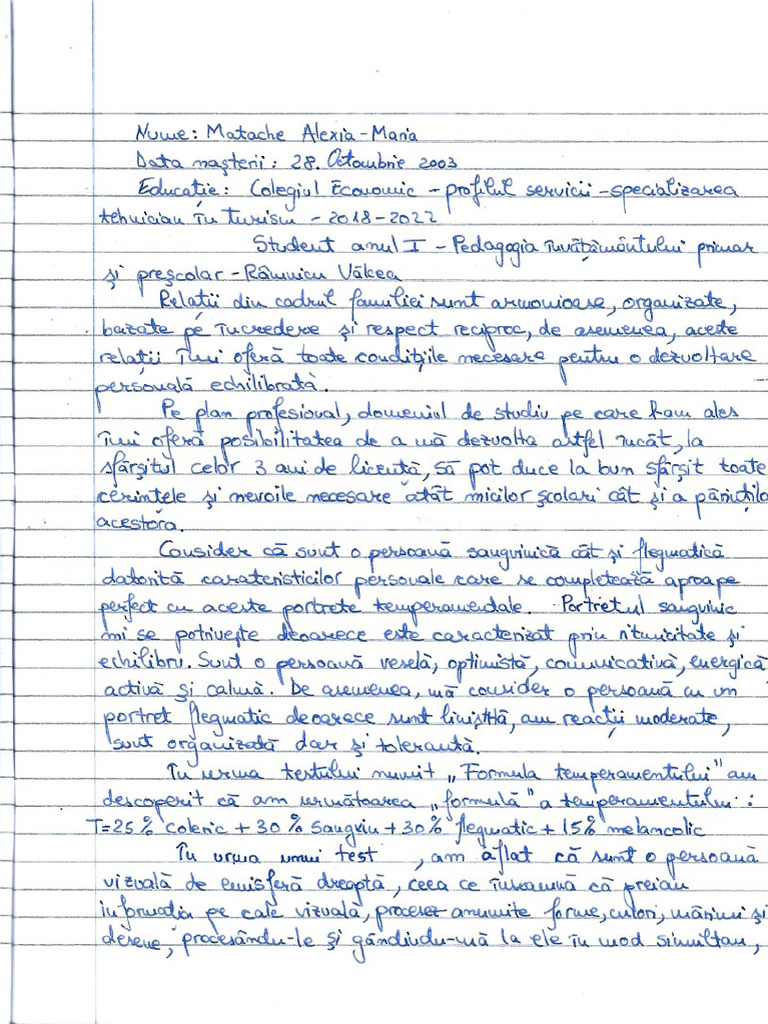 Nume: Matache Alexia-Maria
Data nașterii: 28. Octombrie 2003
Educație: Colegiul Economic - profilul servicii - specializarea
tehnician în turism - 2018-2022
Student anul I - Pedagogia învățământului primar
și preșcolar - Râmnicu Vâlcea
Relații din cadrul familiei sunt armonioase, organizate,
bazate pe încredere și respect reciproc, de asemenea, aceste
relații îmi oferă toate condițiile necesare pentru o dezvoltare
personală echilibrată.
Pe plan profesional, domeniul de studiu pe care l-am ales
îmi oferă posibilitatea de a mă dezvolta astfel încât, la
sfârșitul celor 3 ani de licență, să pot duce la bun sfârșit toate
cerințele și nevoile necesare atât micilor școlari cât și a părinților
acestora.
Consider că sunt o persoană sangvinică cât și flegmatică
datorită carateristicilor personale care se completează aproape
perfect cu aceste portrete temperamentale. Portretul sangvinic
mi se potrivește deoarece este caracterizat prin ritmicitate și
echilibru. Sunt o persoană veselă, optimistă, comunicativă, energică,
activă și calmă. De asemenea, mă consider o persoană cu un
portret flegmatic deoarece sunt liniștită, am reacții moderate,
sunt organizată dar și tolerantă.
În urma testului numit „Formula temperamentului" am
descoperit că am următoarea „formulă" a temperamentului:
T=25% coleric + 30% sangvin + 30% flegmatic + 15% melancolic
În urma unui test , am aflat că sunt o persoană
vizuală de emisferă dreaptă, ceea ce înseamnă că preiau
informația pe cale vizuală, procesez anumite forme, culori, mărimi și
desene, procesându-le și gândindu-mă la ele în mod simultan,